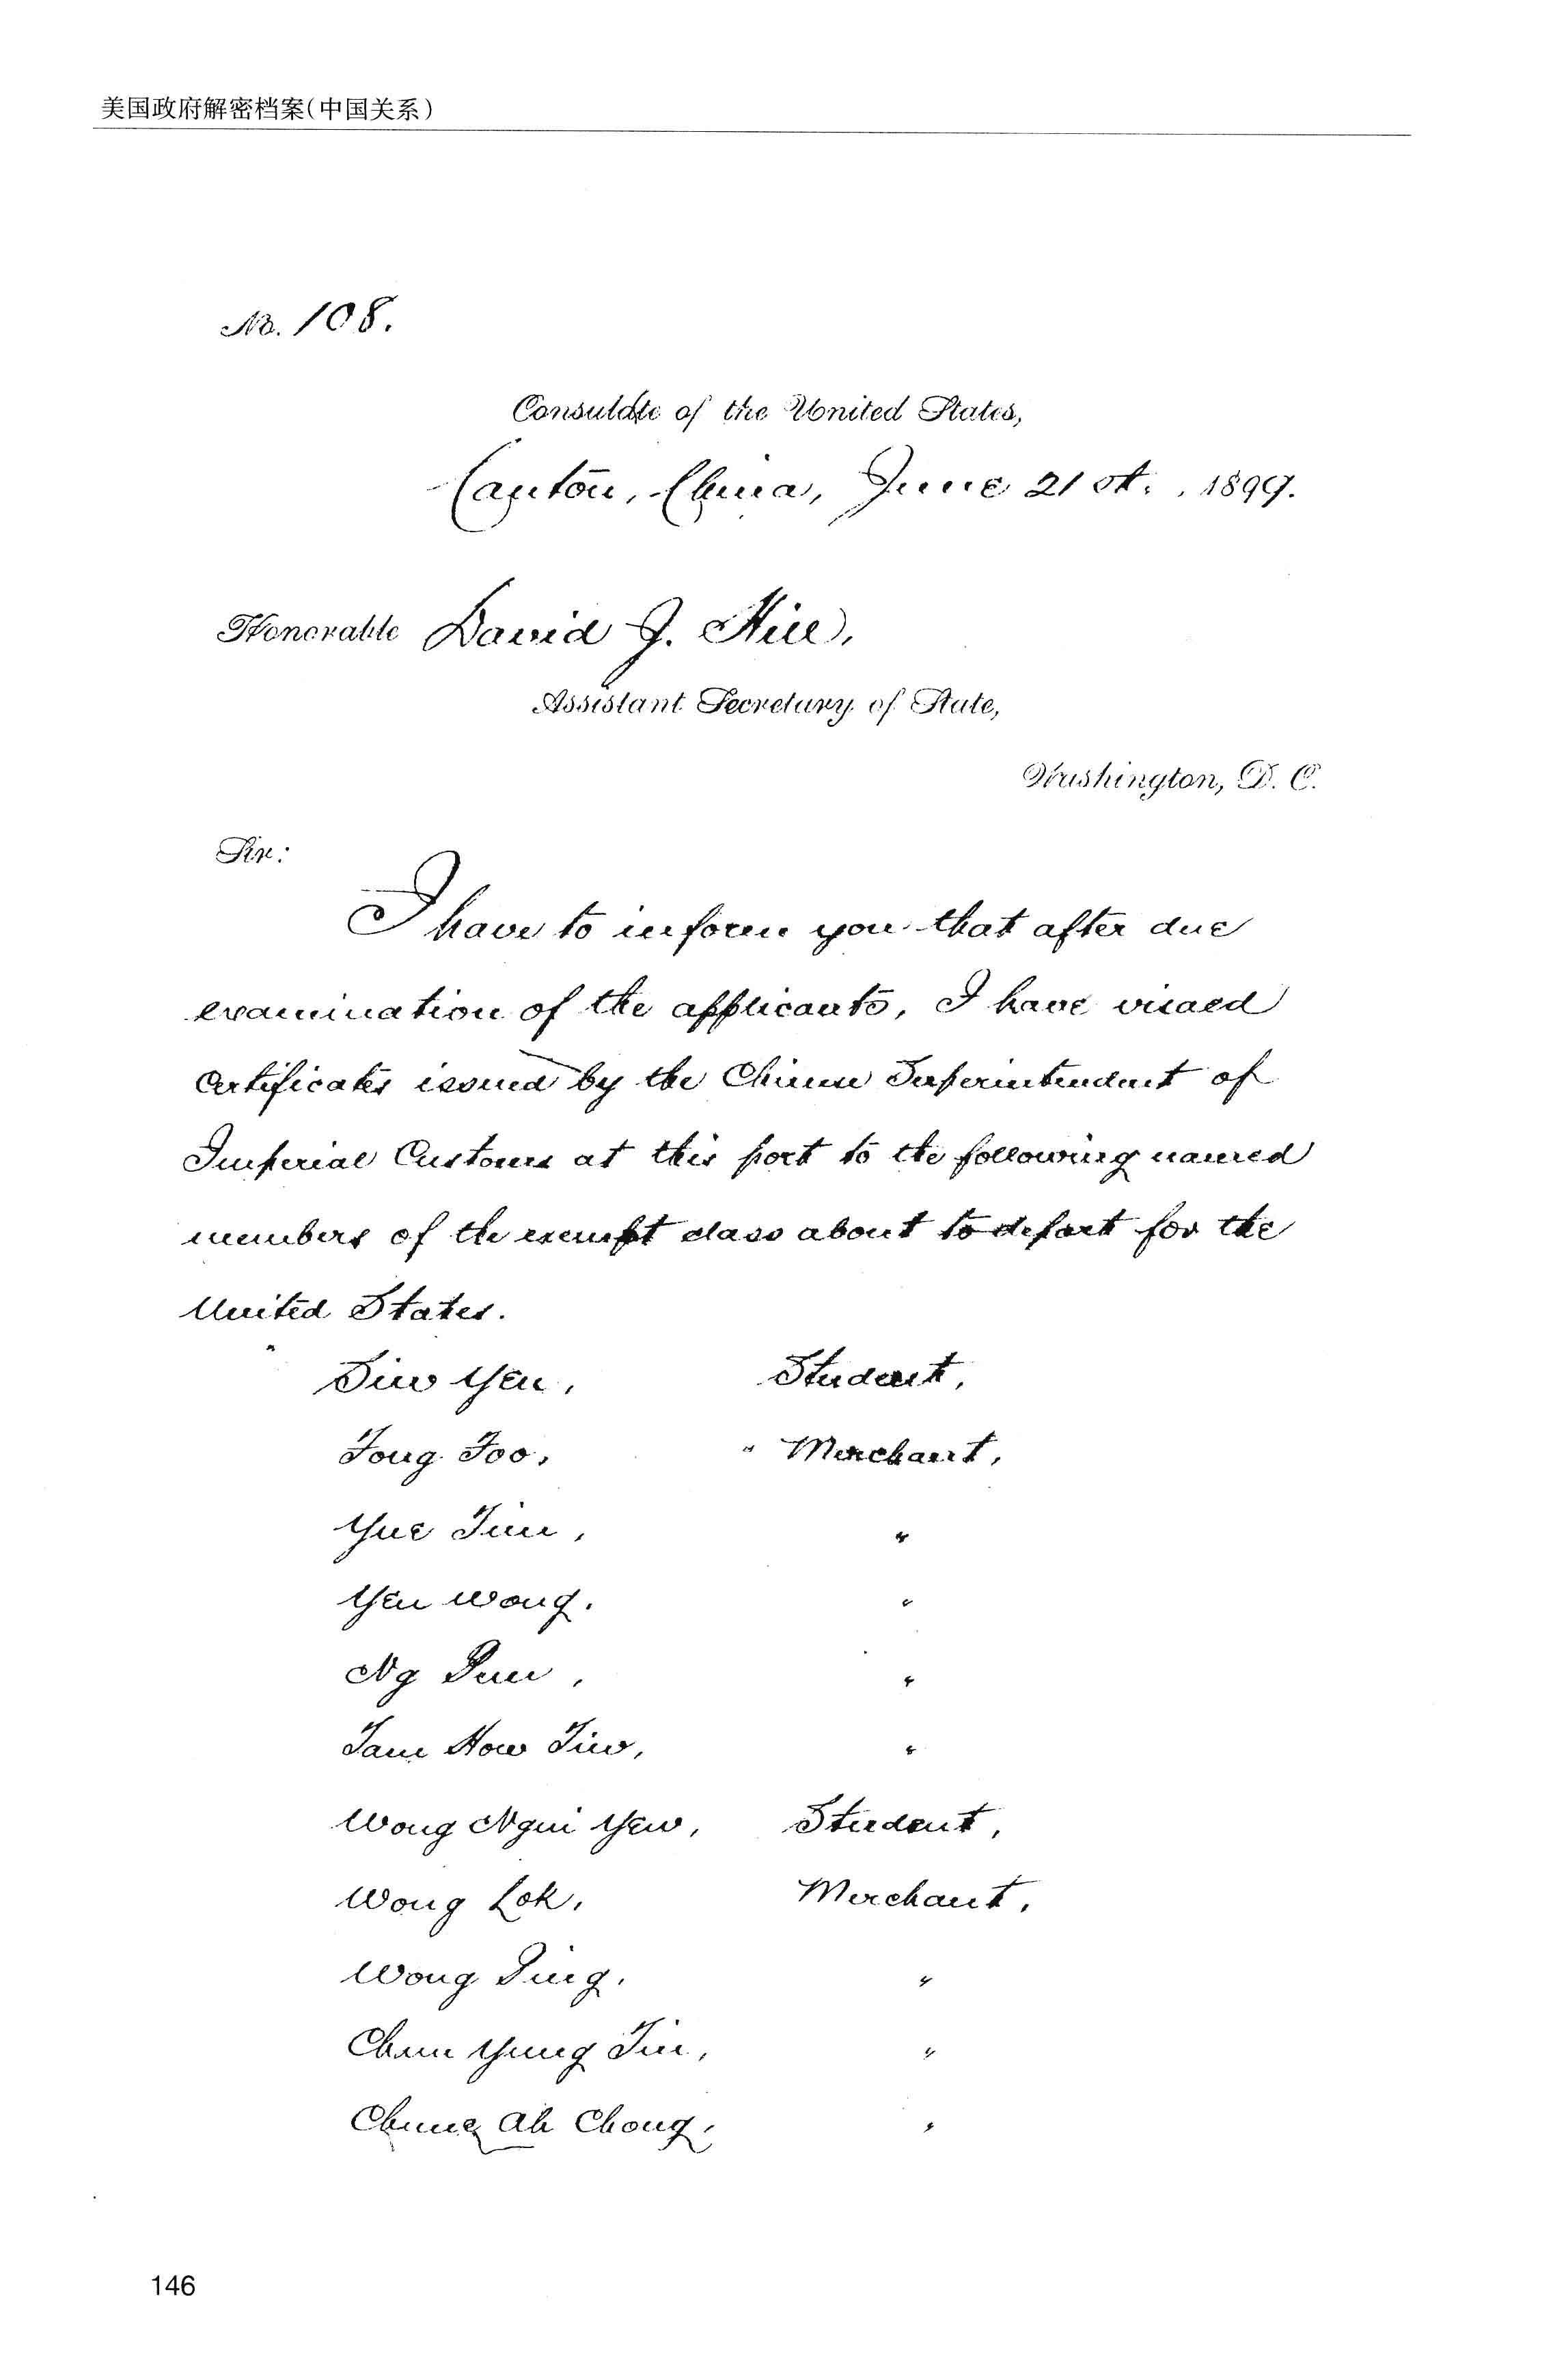 美国政府解密档案(中国关系)
No. 108.
Consulate of the United States,
Canton, China, June 21st. , 1899.
Honorable David J. Hill,
Assistant Secretary of State,
Washington, D. C.
Sir:
I have to inform you that after due
examination of the applicants, I have visaed
Certificates issued by the Chinese Superintendent of
Imperial Customs at this port to the following named
members of the exempt class about to depart for the
United States.
Siw Yen, Student,
Fong Foo, " Merchant,
Yue Tim, "
Yen Wong. "
Ng Sun, "
Tam How Tiw, "
Wong Ngui Yew, Student,
Wong Lok, Merchant,
Wong Sing, "
Chun Yung Tin, "
Chung Ah Chong, "
146